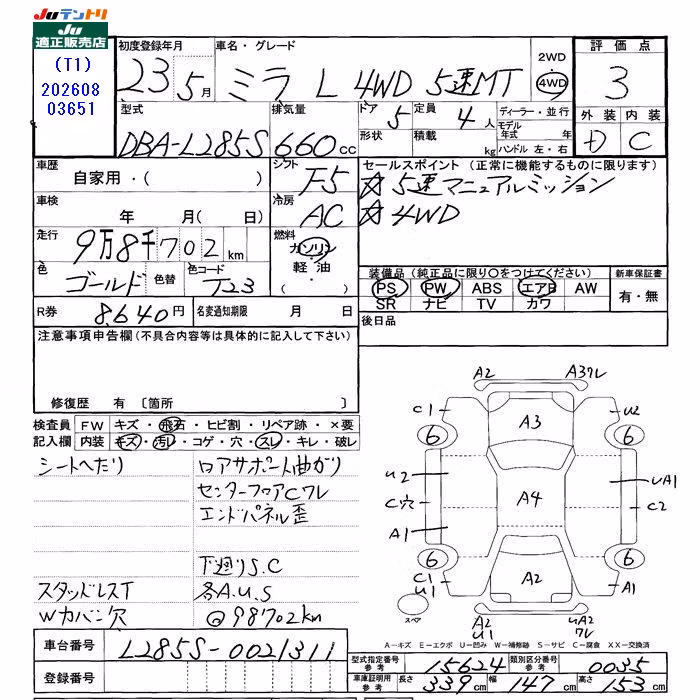 Juテントリ
Ju
適正販売店
(T1)
202608
03651
初度登録年月
23 5月
車名・グレード
ミラ L 4WD 5速MT
2WD
4WD
評価点
3
外装 内装
D C
型式
DBA-L285S
排気量
660cc
ドア 5
形状
定員 4人
積載 kg
ディーラー・並行
モデル年式 年
ハンドル 左・右
車歴
自家用・( )
シフト
F5
車検
年 月( 日)
冷房
AC
走行
9万8千702km
燃料
ガソリン
軽油
( )
色
ゴールド
色替
色コード
T23
R券 8,640円
名変期限 月 日
セールスポイント(正常に機能するものに限ります)
☆5速マニュアルミッション
☆4WD
装備品(純正品に限り○をつけてください)
PS PW ABS エアB AW
SR ナビ TV カワ
新車保証書
有・無
後日品
注意事項申告欄(不具合内容等は具体的に記入して下さい)
修復歴 有〔箇所 〕
検査員 FW キズ・飛石・ヒビ割・リペア跡・×要
記入欄 内装 キズ・汚レ・コゲ・穴・スレ・キレ・破レ
シートへたり
ロアサポート曲がり
センターフロアCワレ
エンドパネル歪
下廻りS.C
スタッドレスT
各A.U.S
Wカバー欠
@98702km
A2 A3ワレ
C1 A3 U2
6 6
U2 UA1
C穴 A4 C2
A1
6 6
C1
U1 A2 A1
スペア
A2
U1
UA2
ワレ
A-キズ E-エクボ U-凹み W-補修跡 S-サビ C-腐食 XX-交換済
車台番号 L285S-0021311
登録番号
型式指定番号
参考
15624
類別区分番号
参考
0035
車庫証明用
参考
長さ 339cm 幅 147cm 高さ 153cm